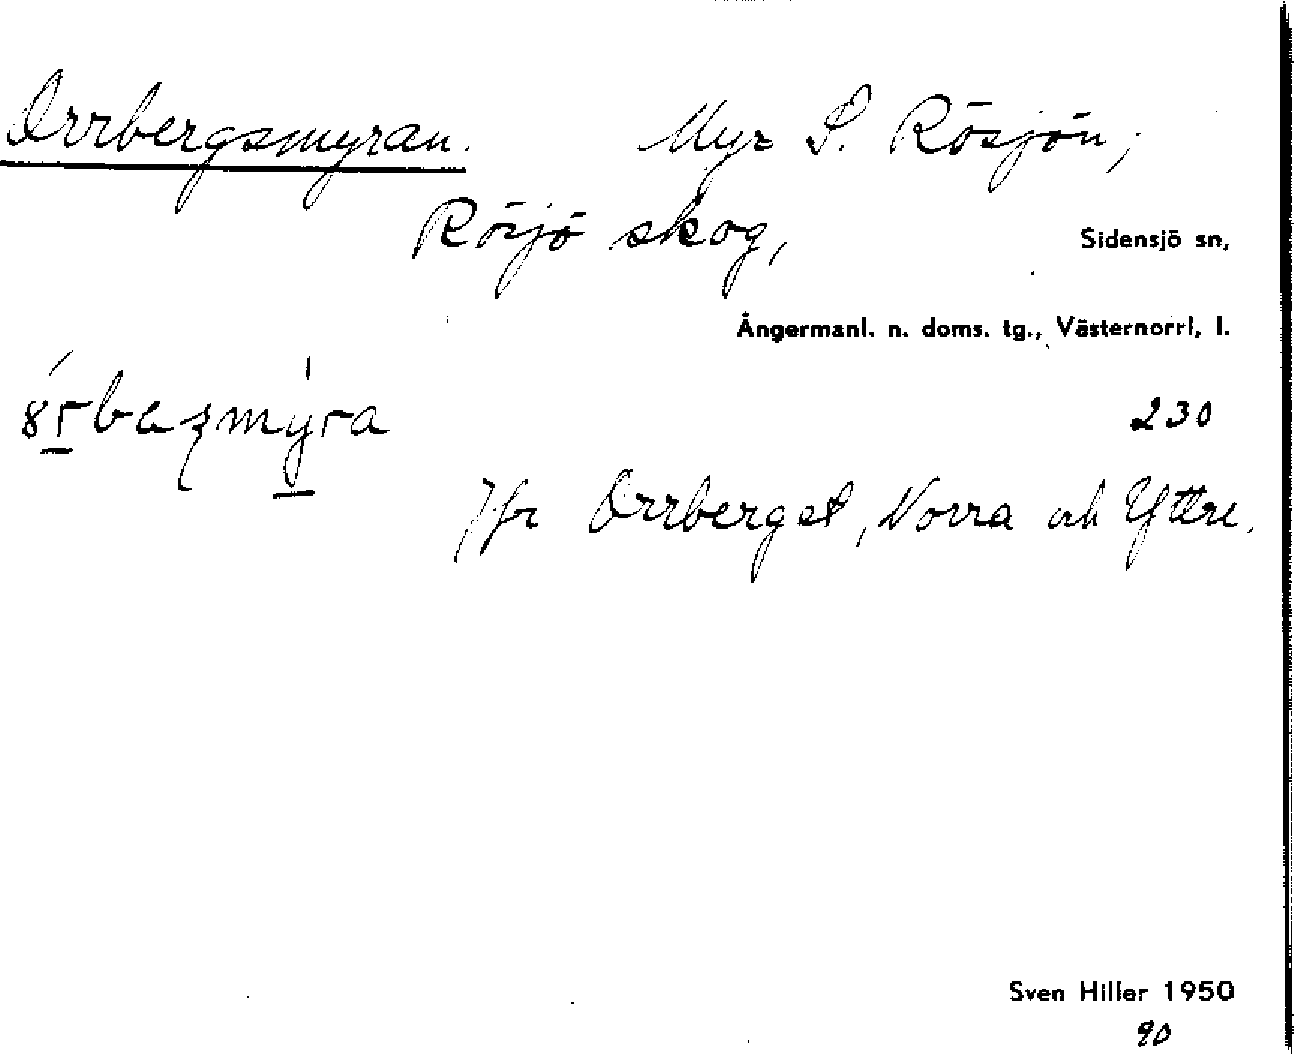 Orrbergsmyran. Myr S. Rösjön;
Rösjö skog,
Sidensjö sn,
Ångermanl. n. doms. tg., Västernorrl, l.
230
Jfr Orrberget, Norra och Yttre.
Sven Hiller 1950
90